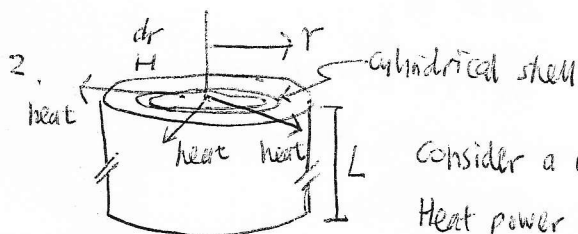 dr
r
2.
cylindrical shell
heat
heat
heat
L
Consider a
Heat power